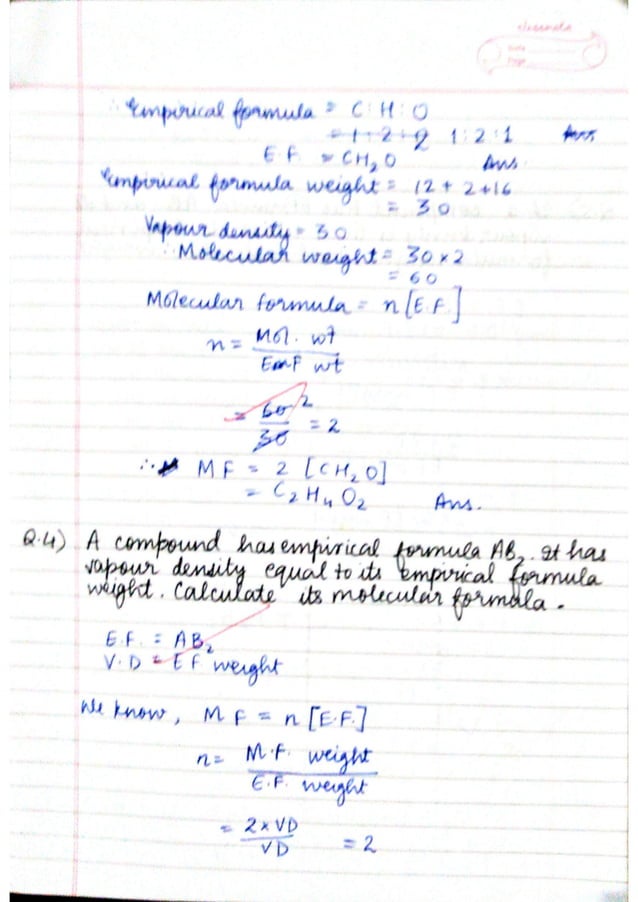 classmate
Date
Page
∴ Empirical formula = C : H : O
= 1 : 2 : 2 1 : 2 : 1 Ans
E F = CH₂O Ans
Empirical formula weight = 12 + 2 + 16
= 30
Vapour density = 30
∴ Molecular weight = 30 × 2
= 60
Molecular formula = n [E.F.]
n = Mol. wt
EmF wt
= 60 2
30 = 2
∴ MF = 2 [CH₂O]
= C₂H₄O₂ Ans.
Q.4) A compound has empirical formula AB₂. It has
vapour density equal to its empirical formula
weight. Calculate its molecular formula.
E.F. = AB₂
V.D = E F weight
We know, M F = n [E.F.]
n = M.F. weight
E.F. weight
= 2 × VD
VD = 2